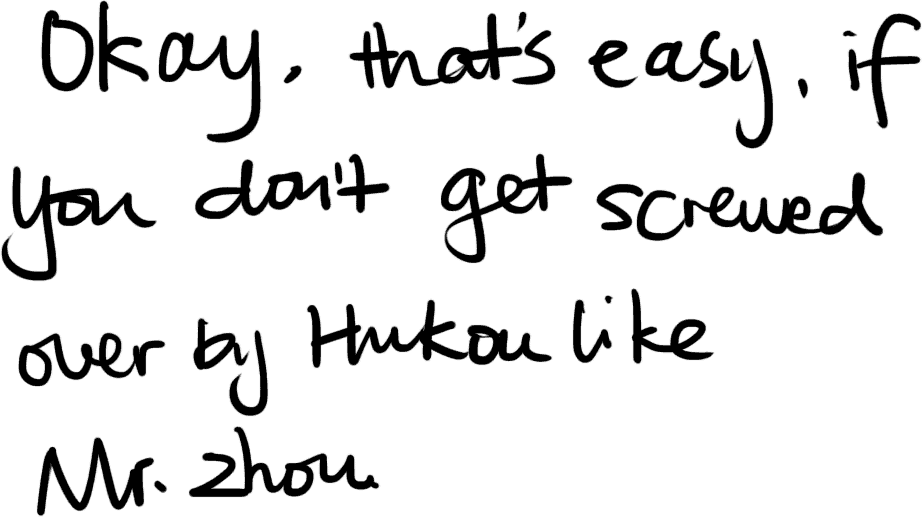 Okay, that's easy, if
you don't get screwed
over by Hukou like
Mr. Zhou.